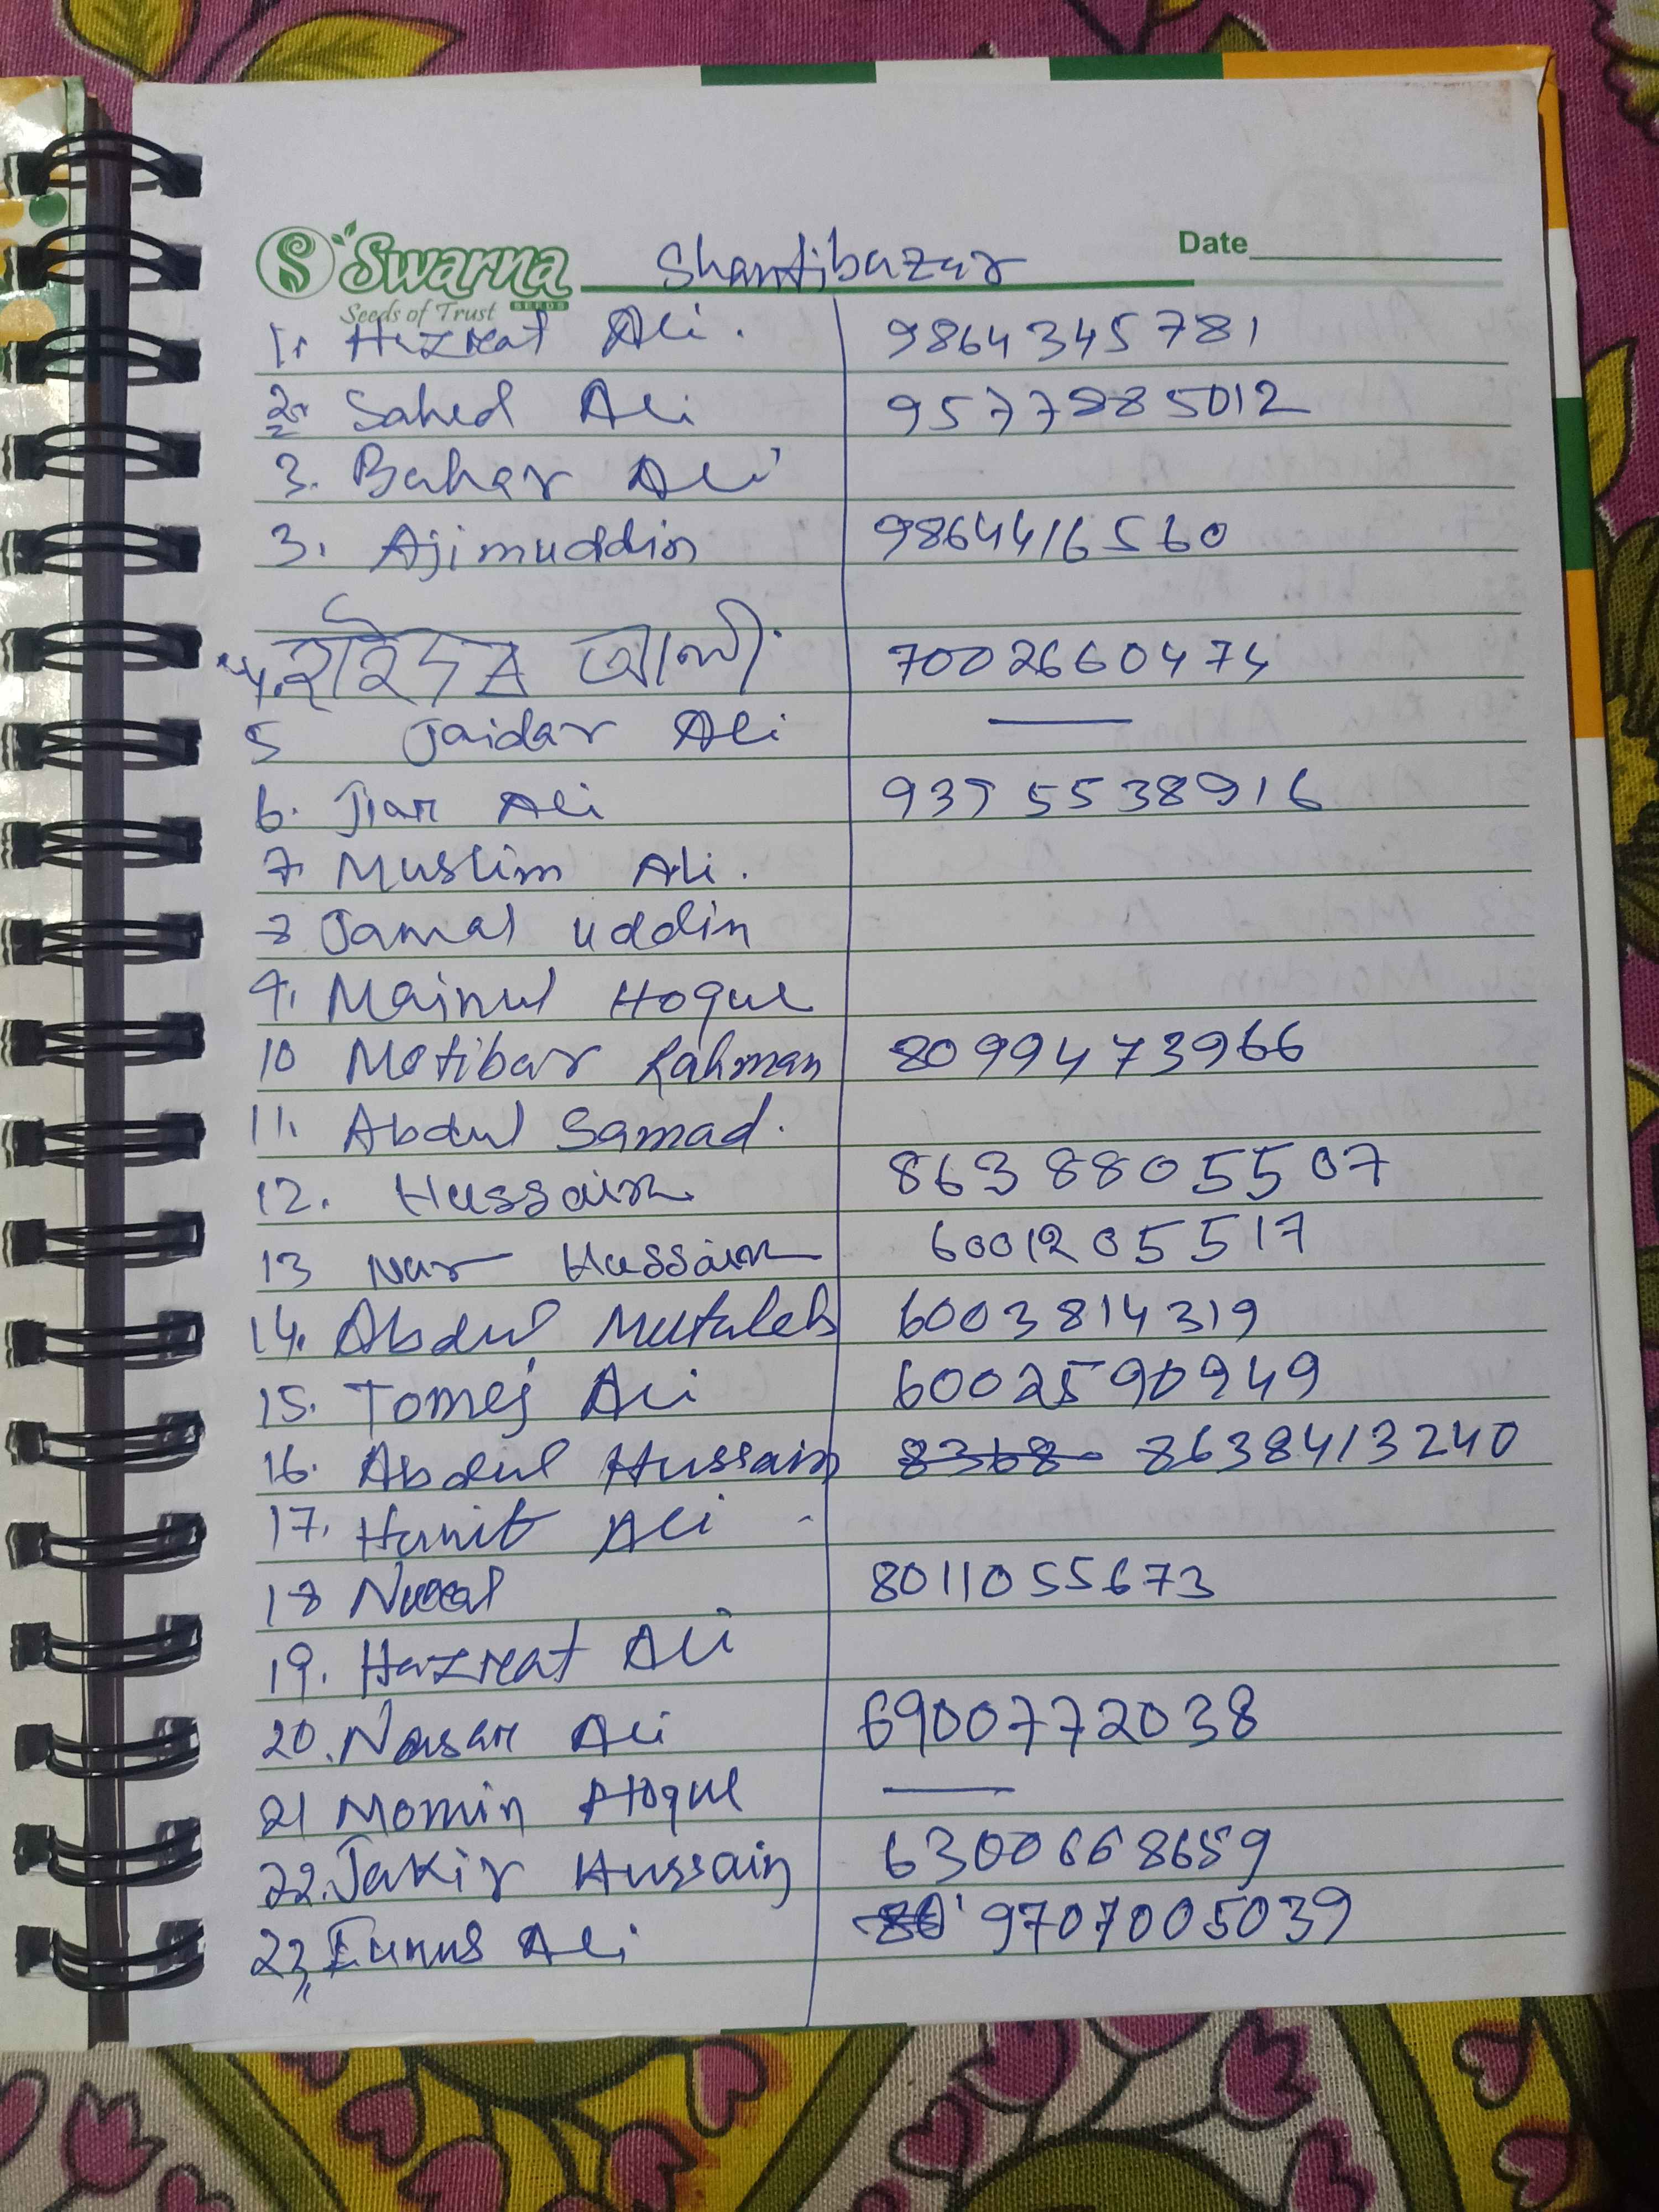 Swarna
SEEDS
Seeds of Trust
Shantibazar
Date
1. Hazrat Ali. 9864345781
2. Sahed Ali 9577885012
3. Bahar Ali
3. Ajimuddin 9864416560
4. আলী 7002660474
5 Jaidar Ali —
6. Jiar Ali 9395538916
7. Muslim Ali.
8 Jamal uddin
9. Mainul Hoque
10 Motibar Rahman 8099473966
11. Abdul Samad.
12. Hussain 8638805507
13 Nur Hussain
14. Abdul Mutaleb 6003814319
15. Tomej Ali 6002590949
16. Abdul Hussain 8368 8638413240
17. Hanif Ali -
18 8011055673
19. Hazrat Ali
20. Nasar Ali 6900772038
21 Momin Hoque —
22. Jakir Hussain 63006668659
23, Eunus Ali 80 9707005039